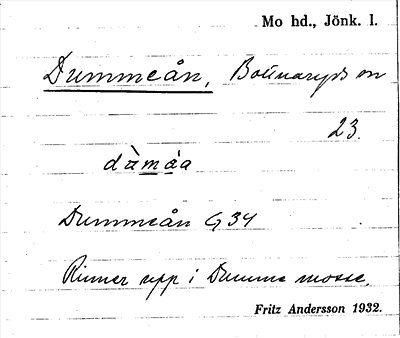 Mo hd., Jönk. l.
Dummeån, Bottnaryds sn
23.
dàmáa
Dummeån G 34
Rinner upp i Dumme mosse.
Fritz Andersson 1932.